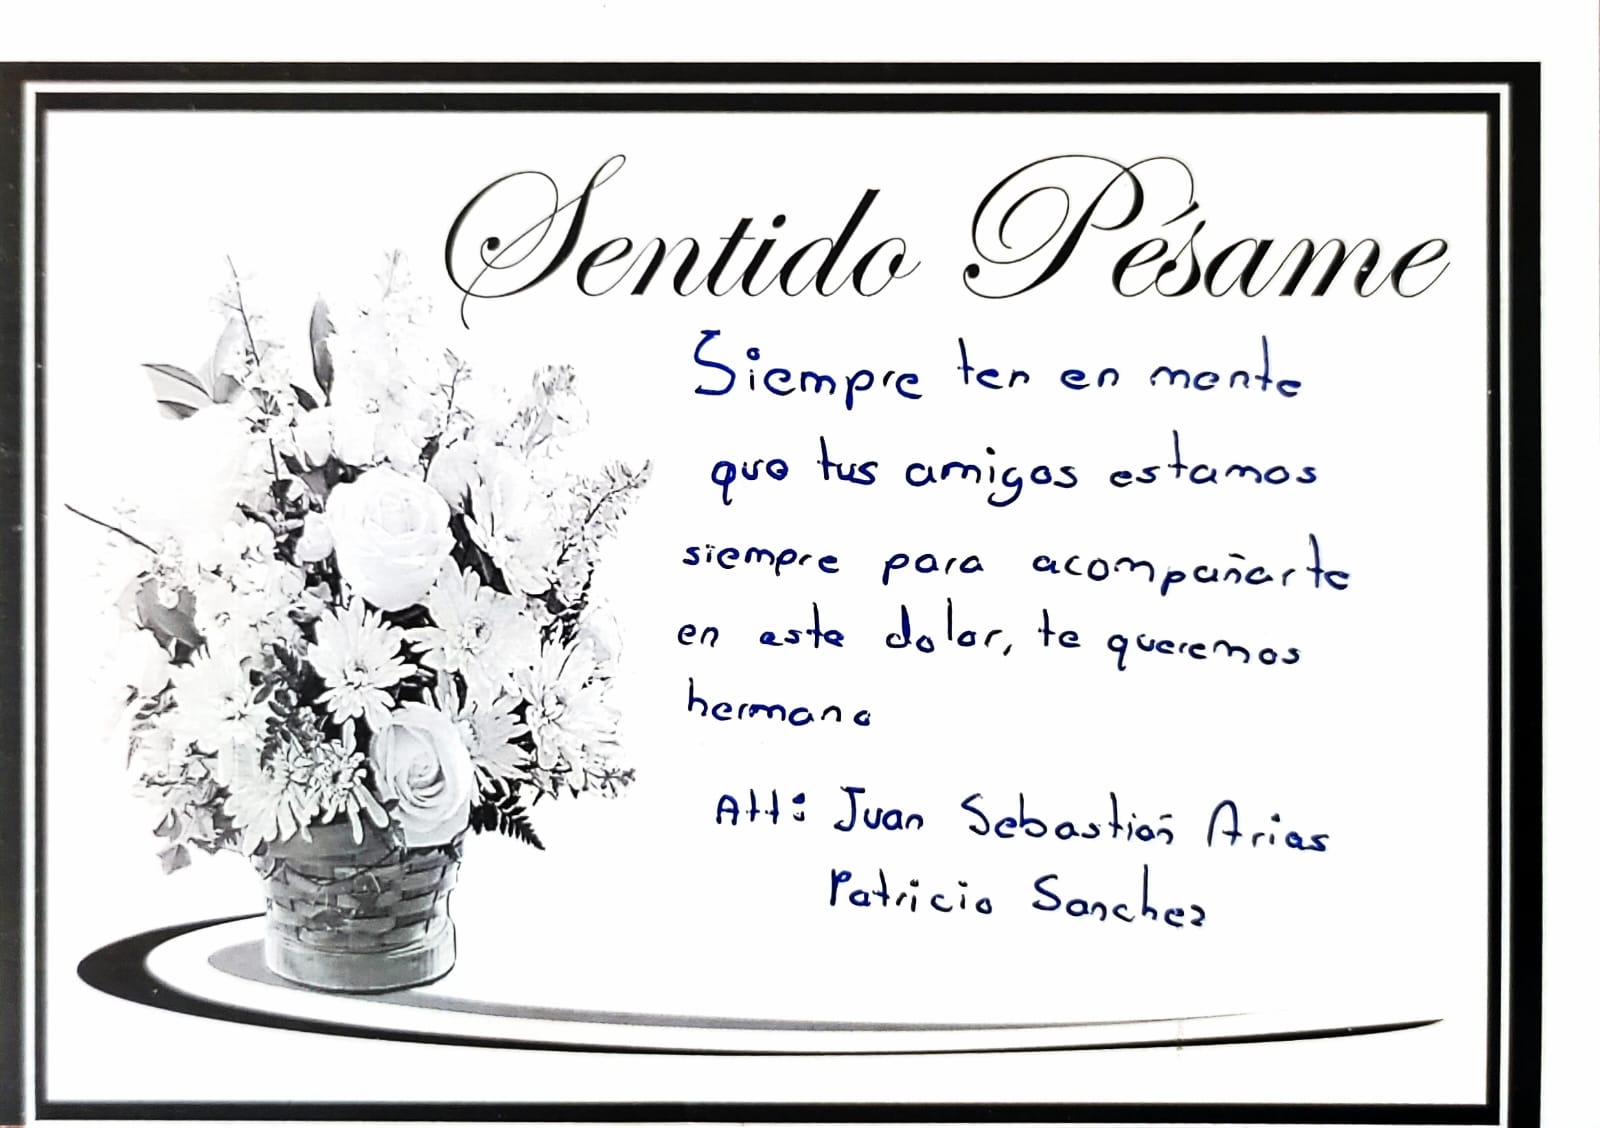 Sentido Pésame
Siempre ten en mente
que tus amigos estamos
siempre para acompañarte
en este dolor, te queremos
hermano
Att: Juan Sebastian Arias
Patricio Sanchez